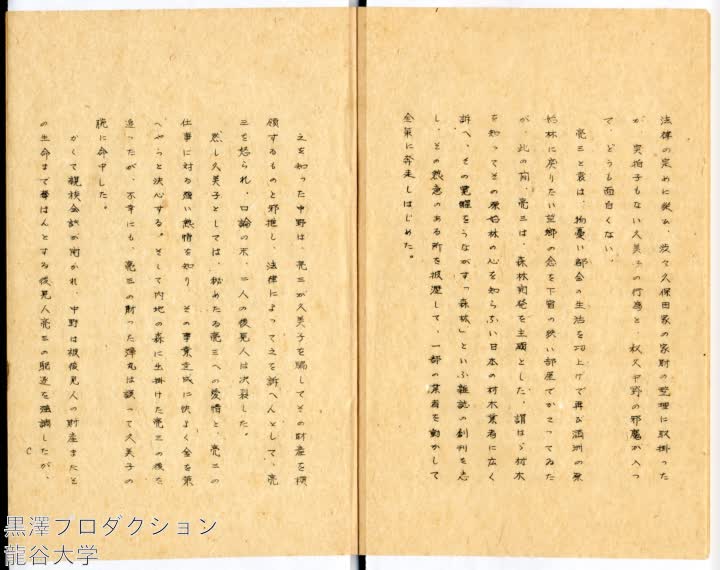 法律の定めに従ひ、茨々久保田家の家財の整理に取掛った
が、突拍子もない久美子の行為と、秋久中野の邪魔が入っ
て、どうも面白くない。
亮三と袁は、物憂い都会の生活を切上げて再び満洲の原
始林に戻りたい望郷の念を下宿の狭い部屋でかこってゐた
が、此の前、亮三は、森林開発を主題とした、謂はゞ材木
を知ってその原始林の心を知らない日本の材木業者に広く
訴へ、その覚醒をうながす「森林」といふ雑誌の創刊を志
し、その熱意のある所を披瀝して、一部の業者を動かして
企業に奔走しはじめた。
之を知った中野は、亮三が久美子を騙してその財産を横
領するものと邪推し、法律によって之を訴へんとして、亮
三を怒られ、口論の末、二人の後見人は決裂した。
然し久美子としては、秘めたる亮三への愛情と、亮三の
仕事に対する強い熱情を知り、その事業完成に快よく金を策
へやうと決心する。そして内地の森に出掛けた亮三の後を
追ったが、不幸にも、亮三の射った弾丸は誤って久美子の
腕に命中した。
かくて親族会議が開かれ、中野は被後見人の財産またと
の生命まで奪はんとする後見人亮三の罷迄を強調したが、
C
黒澤プロダクション
龍谷大学